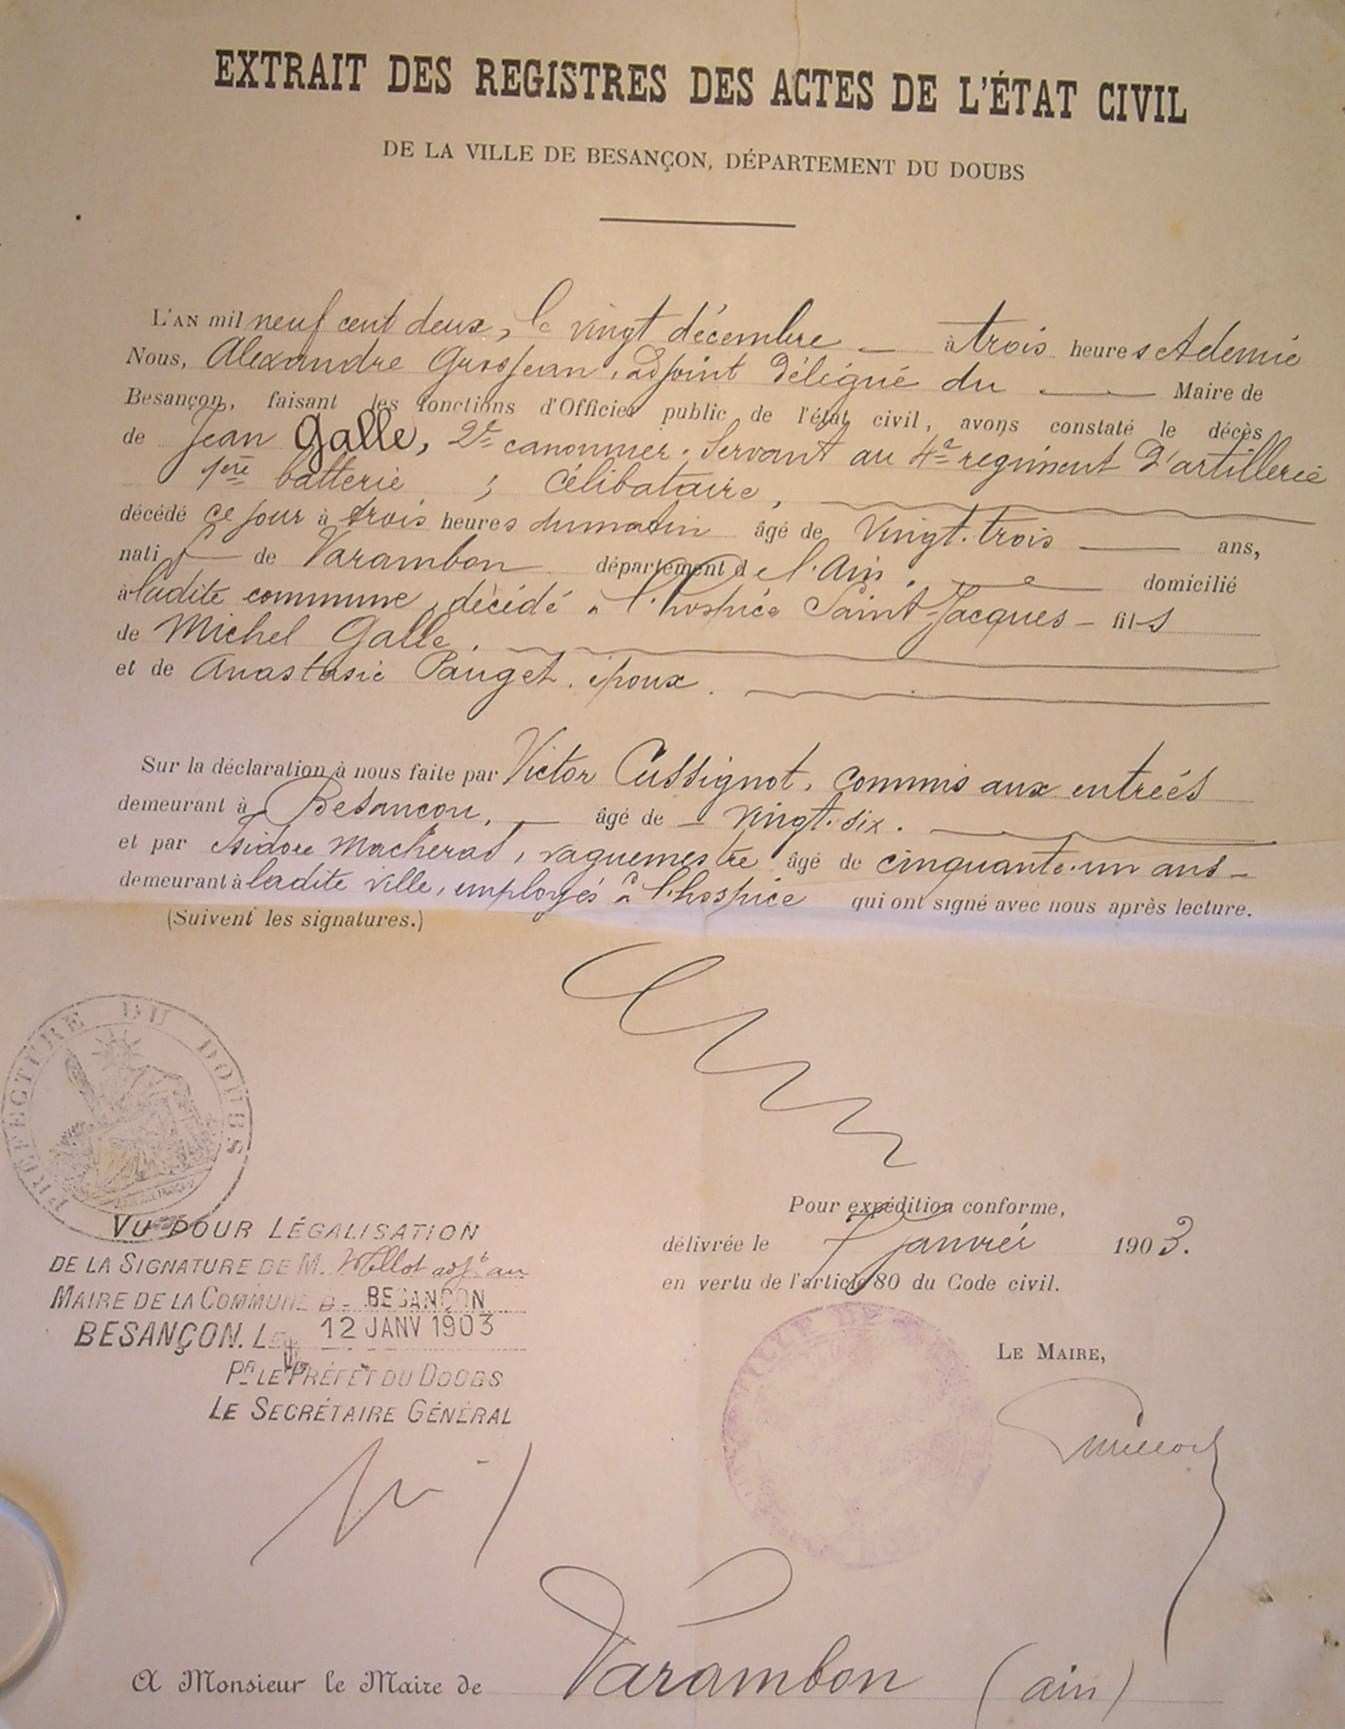 EXTRAIT DES REGISTRES DES ACTES DE L'ÉTAT CIVIL
DE LA VILLE DE BESANÇON, DÉPARTEMENT DU DOUBS
L'AN mil neuf cent deux, le vingt décembre — à trois heures et demie
Nous, Alexandre Grosjean, adjoint délégué du — Maire de
Besançon, faisant les fonctions d'Officier public de l'état civil, avons constaté le décès
de Jean Galle, 2e canonnier servant au 4e régiment d'artillerie
1ère batterie ; célibataire,
décédé ce jour à trois heures du matin âgé de vingt-trois — ans,
natif — de Varambon département de l'Ain. — domicilié
à ladite commune, décédé à l'hospice Saint-Jacques – fils
de Michel Galle.
et de Anastasie Pauget, époux.
Sur la déclaration à nous faite par Victor Cussignot, commis aux entrées
demeurant à Besançon, — âgé de – vingt-six.
et par Isidore, vaguemestre âgé de cinquante-un ans –
demeurant à ladite ville, employés à l'hospice qui ont signé avec nous après lecture.
(Suivent les signatures.)
PRÉFECTURE DU DOUBS
VU POUR LÉGALISATION
DE LA SIGNATURE DE M. adjt au
MAIRE DE LA COMMUNE DE BESANÇON
BESANÇON. LE 12 JANV 1903
Pr LE PRÉFET DU DOUBS
LE SECRÉTAIRE GÉNÉRAL
Pour expédition conforme,
délivrée le 7 janvier 1903.
en vertu de l'article 80 du Code civil.
LE MAIRE,
A Monsieur le Maire de Varambon (ain)